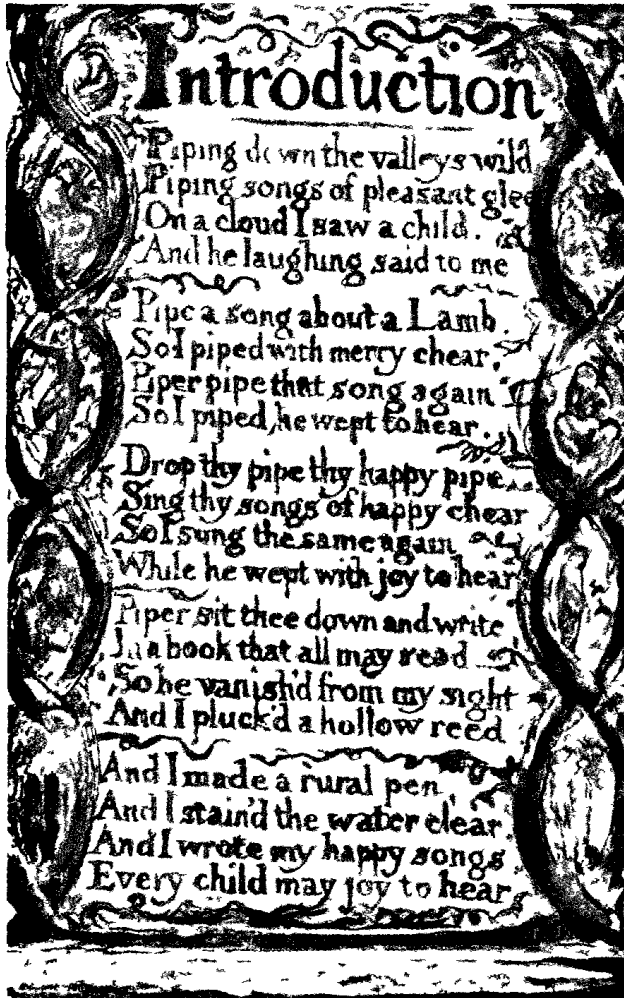 Introduction
Piping down the valleys wild
Piping songs of pleasant glee
On a cloud I saw a child.
And he laughing said to me
Pipe a song about a Lamb.
So I piped with merry chear,
Piper pipe that song again
So I piped, he wept to hear.
Drop thy pipe thy happy pipe
Sing thy songs of happy chear
So I sung the same again
While he wept with joy to hear
Piper sit thee down and write
In a book that all may read
So he vanish'd from my sight
And I pluck'd a hollow reed
And I made a rural pen,
And I stain'd the water clear
And I wrote my happy songs
Every child may joy to hear